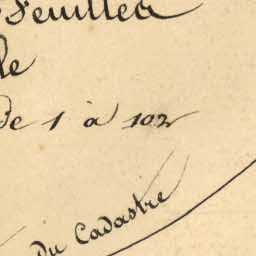 Feuilles
le
de 1 à 102
du Cadastre